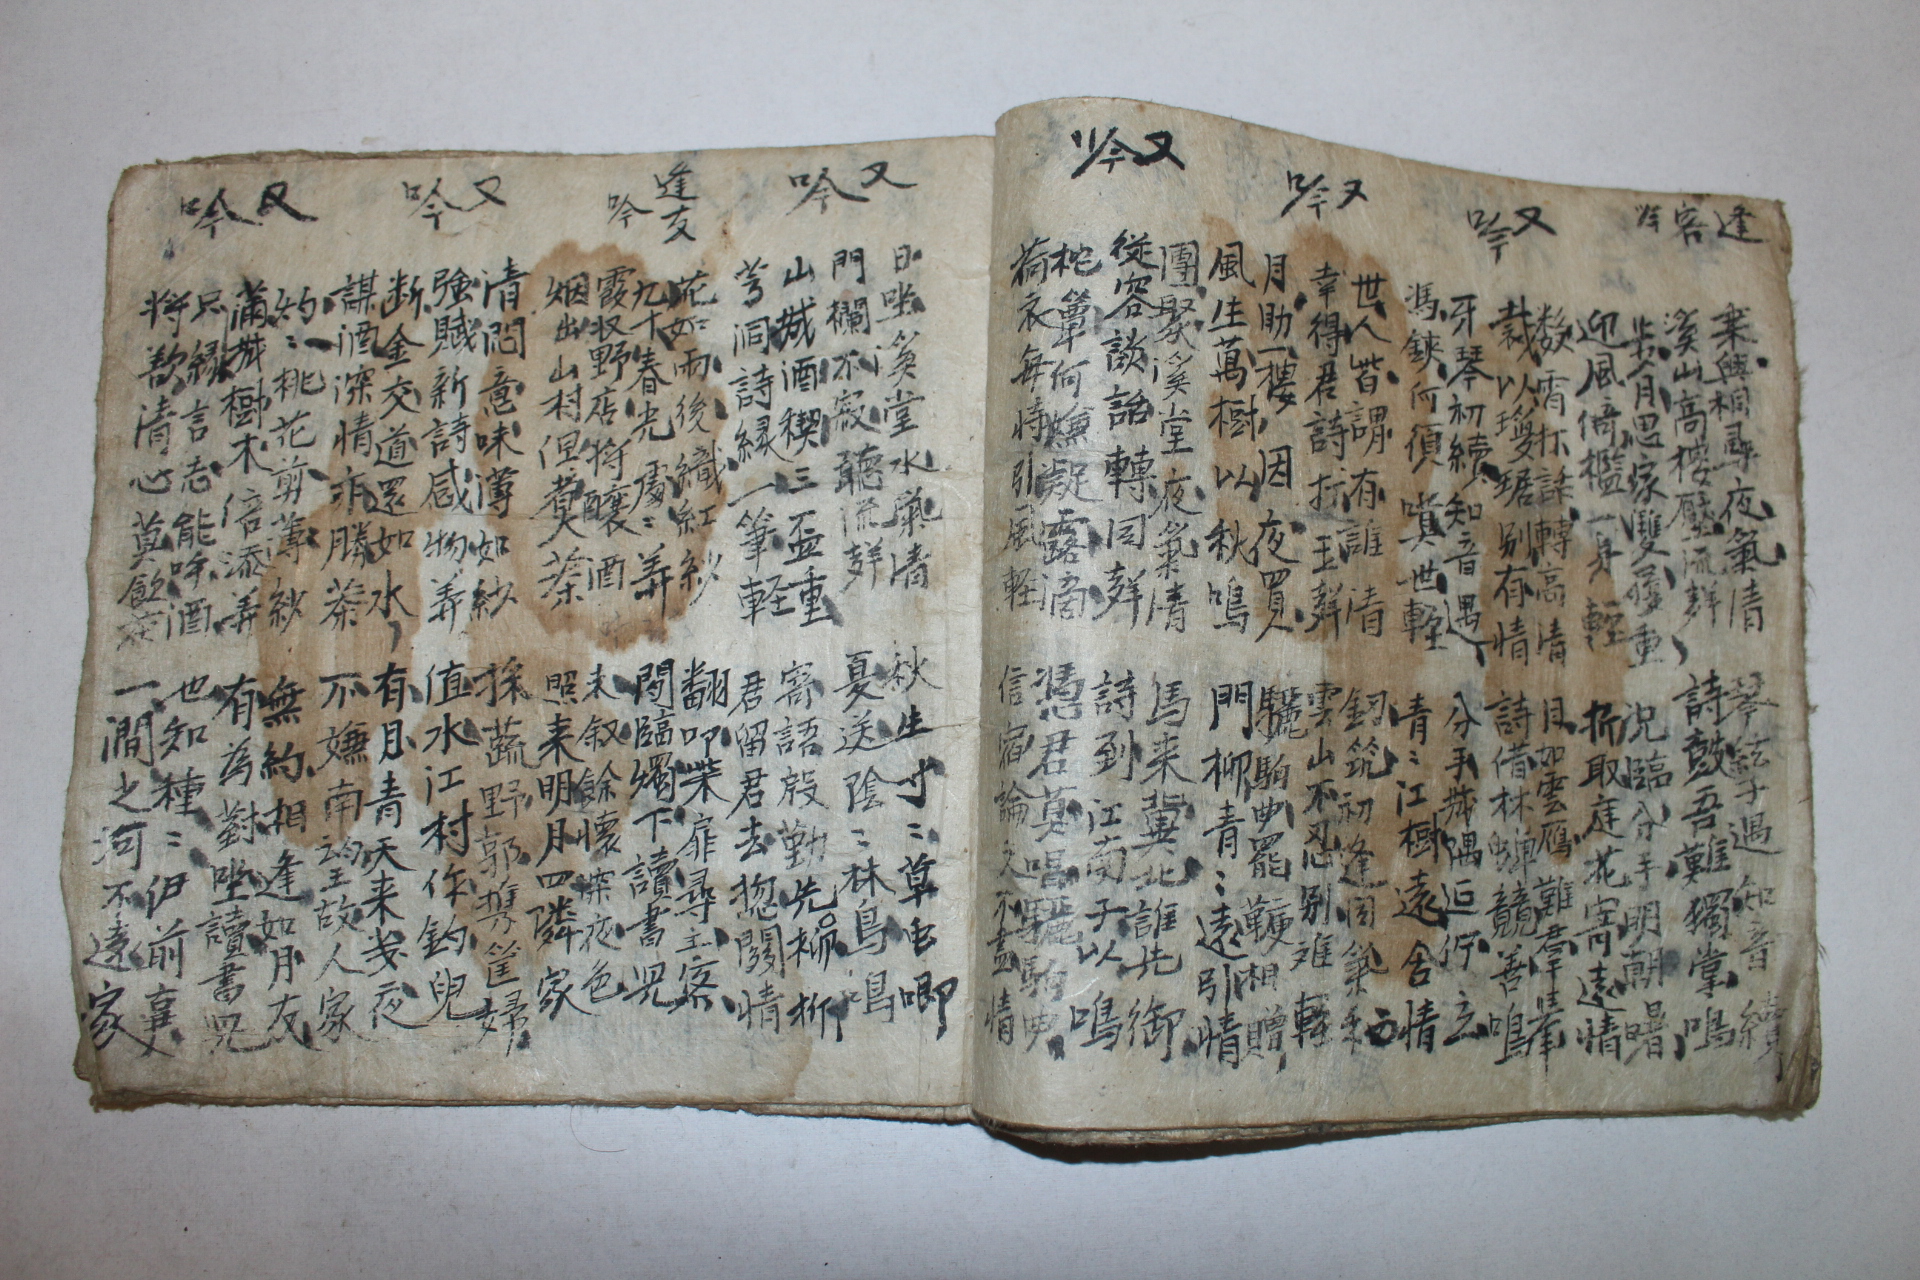 逢客吟
乘興相尋夜氣清 琴絃子遇知音續
溪山高樓壓流聲 詩鼓吾難獨掌鳴
步月思家雙屐重 況臨分手明朝曙
迎風倚檻一身輕 折取庭花寄遠情
又吟
數宵 話轉高清 月如雲雁難羣
裁以瓊琚別有情 詩借林蟬競善鳴
牙琴初續知音遇 分手城隅 佇立
馮鋏何須嘆世輕 青〻江樹遠含情
又吟
世人皆謂有誰清 釰筑初逢 氣
幸得君詩折玉聲 雲山不忍別 輕
月助一樓因夜買 驪駒曲罷鞭相贈
風生萬樹以秋鳴 門柳青〻遠引情
又吟
團聚溪堂夜氣清 馬来冀北誰先御
從容談話轉同聲 詩到江南子以鳴
枕簟何嫌凝露滴 憑君莫唱驪駒曲
荷衣每恃引風輕 信宿論文不盡情
又吟
日坐溪堂水氣清 秋生寸〻草虫唧
門欄不寂聽流聲 夏送陰〻林鳥鳴
山城酒稧三盃重 寄語殷勤先柳折
芎洞詩緣一筆輕 君留君去惣關情
逢友吟
花如雨後織紅紗 翻叩柴扉尋主客
九十春光處〻華 閑臨燭下讀書兒
霞收野店將釀酒 未叙餘懷深夜色
烟出山村但煮茶 照来明月四隣家
又吟
清悶意味薄如紗 採蔬野郭携筐婦
強賦新詩感物華 值水江村作釣兒
断金交道還如水 有月青天来幾夜
謀酒深情亦勝茶 不嫌南 故人家
又吟
灼〻桃花剪薄紗 無約相逢如月友
滿城樹木倍添華 有為對坐讀書兒
只緣言志能呼酒 也知種〻伊前
將欲清心莫飲茶 一澗之河不遠家